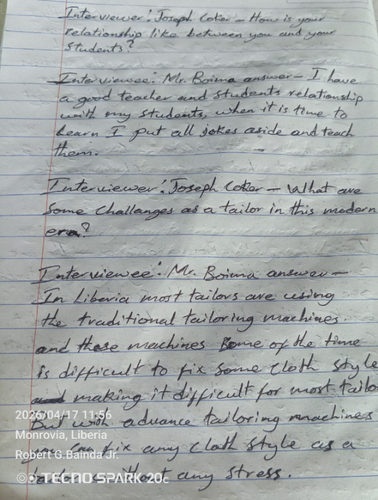 Interviewer: Joseph Coker - How is your
relationship like between you and your
students?
Interviewee: Mr. Boima answer - I have
a good teacher and students relationship
with my students, when it is time to
learn I put all jokes aside and teach
them.
Interviewer: Joseph Coker - What are
some challanges as a tailor in this modern
era?
Interviewee: Mr. Boima answer -
In Liberia most tailors are using
the traditional tailoring machines.
and those machines some of the time
is difficult to fix some cloth style
making it difficult for most tailo
But with advance tailoring machines
fix any cloth style as a
any stress.
2026/04/17 11:56
Monrovia, Liberia
Robert G.Bainda Jr.
TECNO SPARK 20c